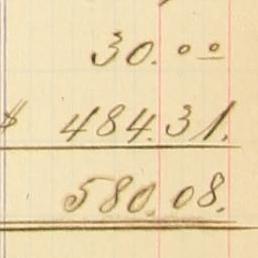 30.00
$ 484.31.
580.08.